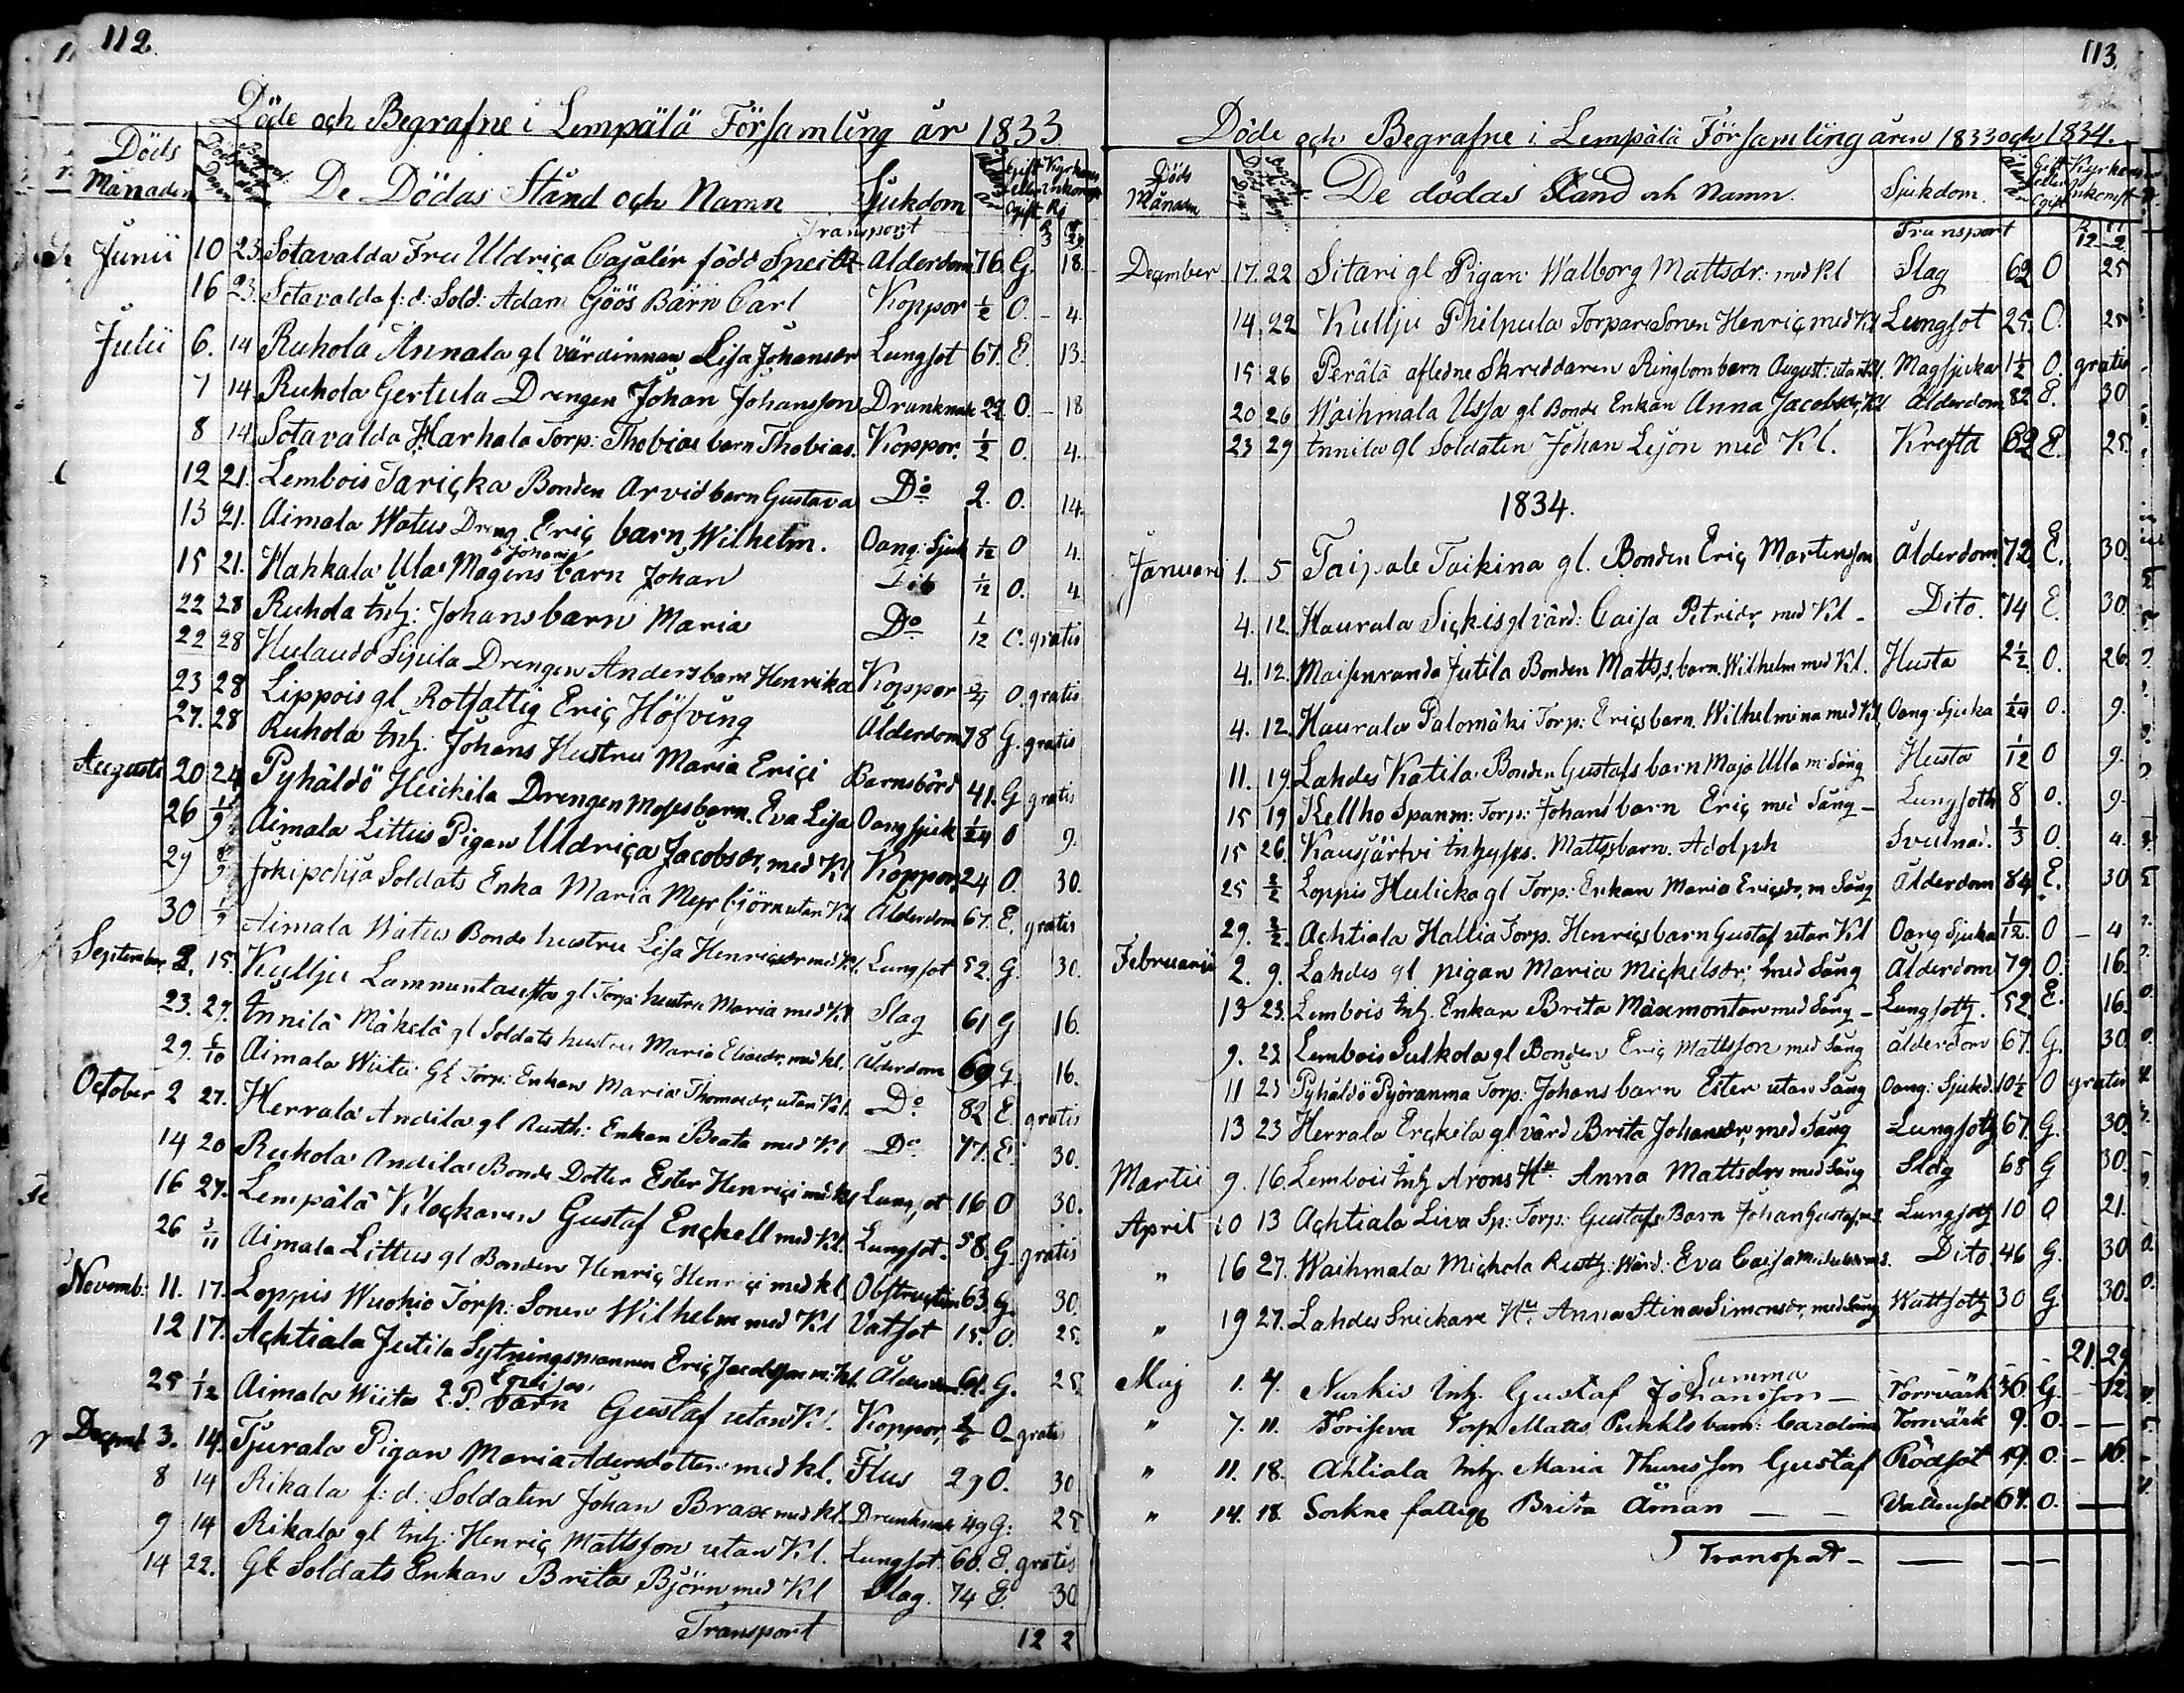 112.
Döde och Begrafne i Lempälä Församling år 1833
Döds Månaden Döds Dagen Begraf. dagen De Dödas Stånd och Namn Sjukdom Ålder Gift eller Ogift Kyrkans Inkomst
Transport 3 29
Junii 10 23 Sotavalda Fru Uldriça Cajalén född Speitz Alderdom 76. G. 18.
16 23. Sotavalda f:d: Sold: Adam Göös Barn Carl Koppor ½ O. - 4.
Julii 6. 14 Ruhola Annala gl värdinnan Lisa Johansdr Lungsot 67. E. 13.
7 14 Ruhola Gertula Drengen Johan Johansson Drunknade 22 O. - 18
8 14 Sotavalda Harhala Torp: Thobias barn Thobias. Koppor. ½ O. 4.
12 21. Lembois Tariçka Bonden Arvid barn Gustava Do 2. O. 14.
13 21. Aimala Watus Dreng. Eriç barn Wilhelm. Oang: Sjuk 1/12 O 4.
15 21. Hahkala Ula Magens Johans barn Johan Dito 1/12 O. 4
22 28 Ruhola Inh: Johans barn Maria Do 1/12 O. gratis
22 28 Hulaudd Sipila Drengen Anders barn Henrika Koppor ¾ O. gratis
23 28 Lippois gl Rotfattig Eriç Höfving Alderdom 78 G. gratis
27. 28 Ruhola Inh: Johans Hustru Maria Eriçi Barnsbörd 41. G gratis
Augusti 20 24 Pyhäldö Heickila Drengen Moses barn. Eva Lisa Oang Sjuk 1/24 O 9.
26 1/9 Aimala Littus Pigan Uldriça Jacobsdr, med Kl Koppor 24 O. 30.
29 Jokipohja Soldats Enka Maria Myrbjörn utan Kl Alderdom 67. E. gratis
30 1/9 Aimala Watus Bonde hustru Lisa Henriçsdr med Kl. Lungsot 52. G. 30.
September 8. 15. Kulju Lammentausta gl Torp: hustru Maria med Kl Slag 61 G 16.
23. 29. Innilä Mäkelä gl Soldats hustru Maria Eliaedr, med kl. Alderdom 60 G 16.
29. 6/10 Aimala Wiita Gl Torp: Enkan Maria Thomasdr, utan Kl. Do 82 E gratis
October 2 27. Herrala Andila gl Rusth: Enkan Beata med Kl Do 77. E. 30.
14 20 Ruhola Andila Bonde Dotter Ester Henriçi med kl Lungsot 16 O 30.
16 27. Lempälä Kloçkaren Gustaf Ençkell med Kl. Lungsot. 58. G. gratis
26 3/11 Aimala Littus gl Bonden Henriç Henriçi med kl Obstruction 63. G. 30.
Novemb: 11. 17. Loppis Wuohio Torp: Sonen Wilhelm med Kl Vatsot 15. O. 25.
12 17. Açhtiala Jutila Sytningsmannen Eriç Jacobsson m: Kl. Alderdom. 61. G. 25
25 1/12 Aimala Wiita Q.P. Lovisas barn Gustaf utan Kl. Koppor. O gratis
Decemb 3. 14. Tjurala Pigan Maria Adersdotter med kl. Flus 29 O. 30
8 14 Rikala f:d: Soldaten Johan Brax med kl. Drunknade 49 G: 25
9 14 Rikala gl Inh: Henriç Mattsson utan Kl. Lungsot. 60. E. gratis
14 22. Gl Soldats Enkan Brita Björn med Kl Slag. 74 E. 30
Transport 12 2
113.
Döde och Begrafne i Lempälä Församling åren 1833 och 1834.
Döds Månaden Döds Dagen De dödas Stånd och Namn. Sjukdom. Ålder Gift eller Ogift Kyrkans Inkomst
Transport 12 - 2
December 17. 22 Sitari gl Pigan Walborg Mattsdr: med Kl Slag 62 O 25
14. 22 Kullju Philpula Torpare Sonen Henriç med Kl Lungsot 25. O. 25
15 26 Perälä afledne Skreddaren Ringbom barn August: utan Kl. Magsjuka 1½ O. gratis
20 26 Waihmala Ussa gl Bonde Enkan Anna Jacobsdr, Kl Alderdom 82 E. 30
23 29 Innila gl Soldaten Johan Lejon med Kl. Krefta 62 E. 25.
1834.
Januari 1. 5 Taipale Taikina gl. Bonden Eriç Martensson Alderdom. 72 E. 30.
4. 12. Haurala Siçkis gl värd: Caisa Petridr, med Kl - Dito. 74 E. 30.
4. 12. Maisenranda Jutila Bonden Matts,s. barn. Wilhelm med Kl. Husta 2½ O. 26.
4. 12. Haurala Palomäki Torp: Eriçs barn. Wilhelmina med Kl. Oang: Sjuka 1/24 O. 9.
11. 19. Lahdes Katila Bonden Gustafs barn Maja Ulla m: Sång Husta 1/12 O 9.
15 19 Kellho Spanm: Torp: Johans barn Eriç med Sång - Lungsoth 8 O. 9.
15 26. Kausjärfvi Inhyses. Matts barn. Adolph Svulnad. ⅓ O. 4.
25 2/2 Loppis Hulicka gl Torp: Enkan Maria Eriçsdr, m Sång Alderdom 84 E. 30
29. 2/2. Açhtiala Hallia Torp. Henriçs barn Gustaf utan Kl Oang Sjuka 1/12. O - 4
Februarii 2. 9. Lahdes gl pigan Maria Miçkelsdr; med Sång Alderdom 79. O. 16.
13 23. Lembois Inh. Enkan Brita Maxmontan med Sång - Lungsoth. 52. E. 16.
9. 23 Lembois Sulkola gl Bonden Eriç Mattsson med Sång alderdom 67. G. 30.
11 23 Pyhäldö Pyöranma Torp: Johans barn Ester utan Sång Oang: Sjukd. 10½ O gratis
13 23 Herrala Erçkila gl värd Brita Johansdr, med Sång Lungsoth 67. G. 30.
Martii 9. 16. Lembois Inh Arons Hu Anna Mattsdr, med Sång Slag 68 G 30.
April 10 13 Açhtiala Liva Sp: Torp: Gustafs Barn Johan Gustaf, m.S. Lungsoth 10 O 21.
" 16 27. Waihmala Miçhola Rusth: Wärd: Eva Caisa m.S. Dito 46 G. 30
" 19 27. Lahdes Snickare Hu Anna Stina Simonsdr, med Sång Wattsoth 30 G. 30.
Summa 21. 29
Maj 1. 4. Nurkis Inh. Gustaf Johansson - Torrvärk 36 G. - 12.
" 7. 11. Torp. Matts barn: Carolina Torrvärk 9. O. - -
" 11. 18. Ahtiala Inh. Maria Thures Son Gustaf Rödsot 19. O. - 16.
" 14. 18. Sockne fattige Brita Öman - - Vattusot 67. O. -
Transport - - - -